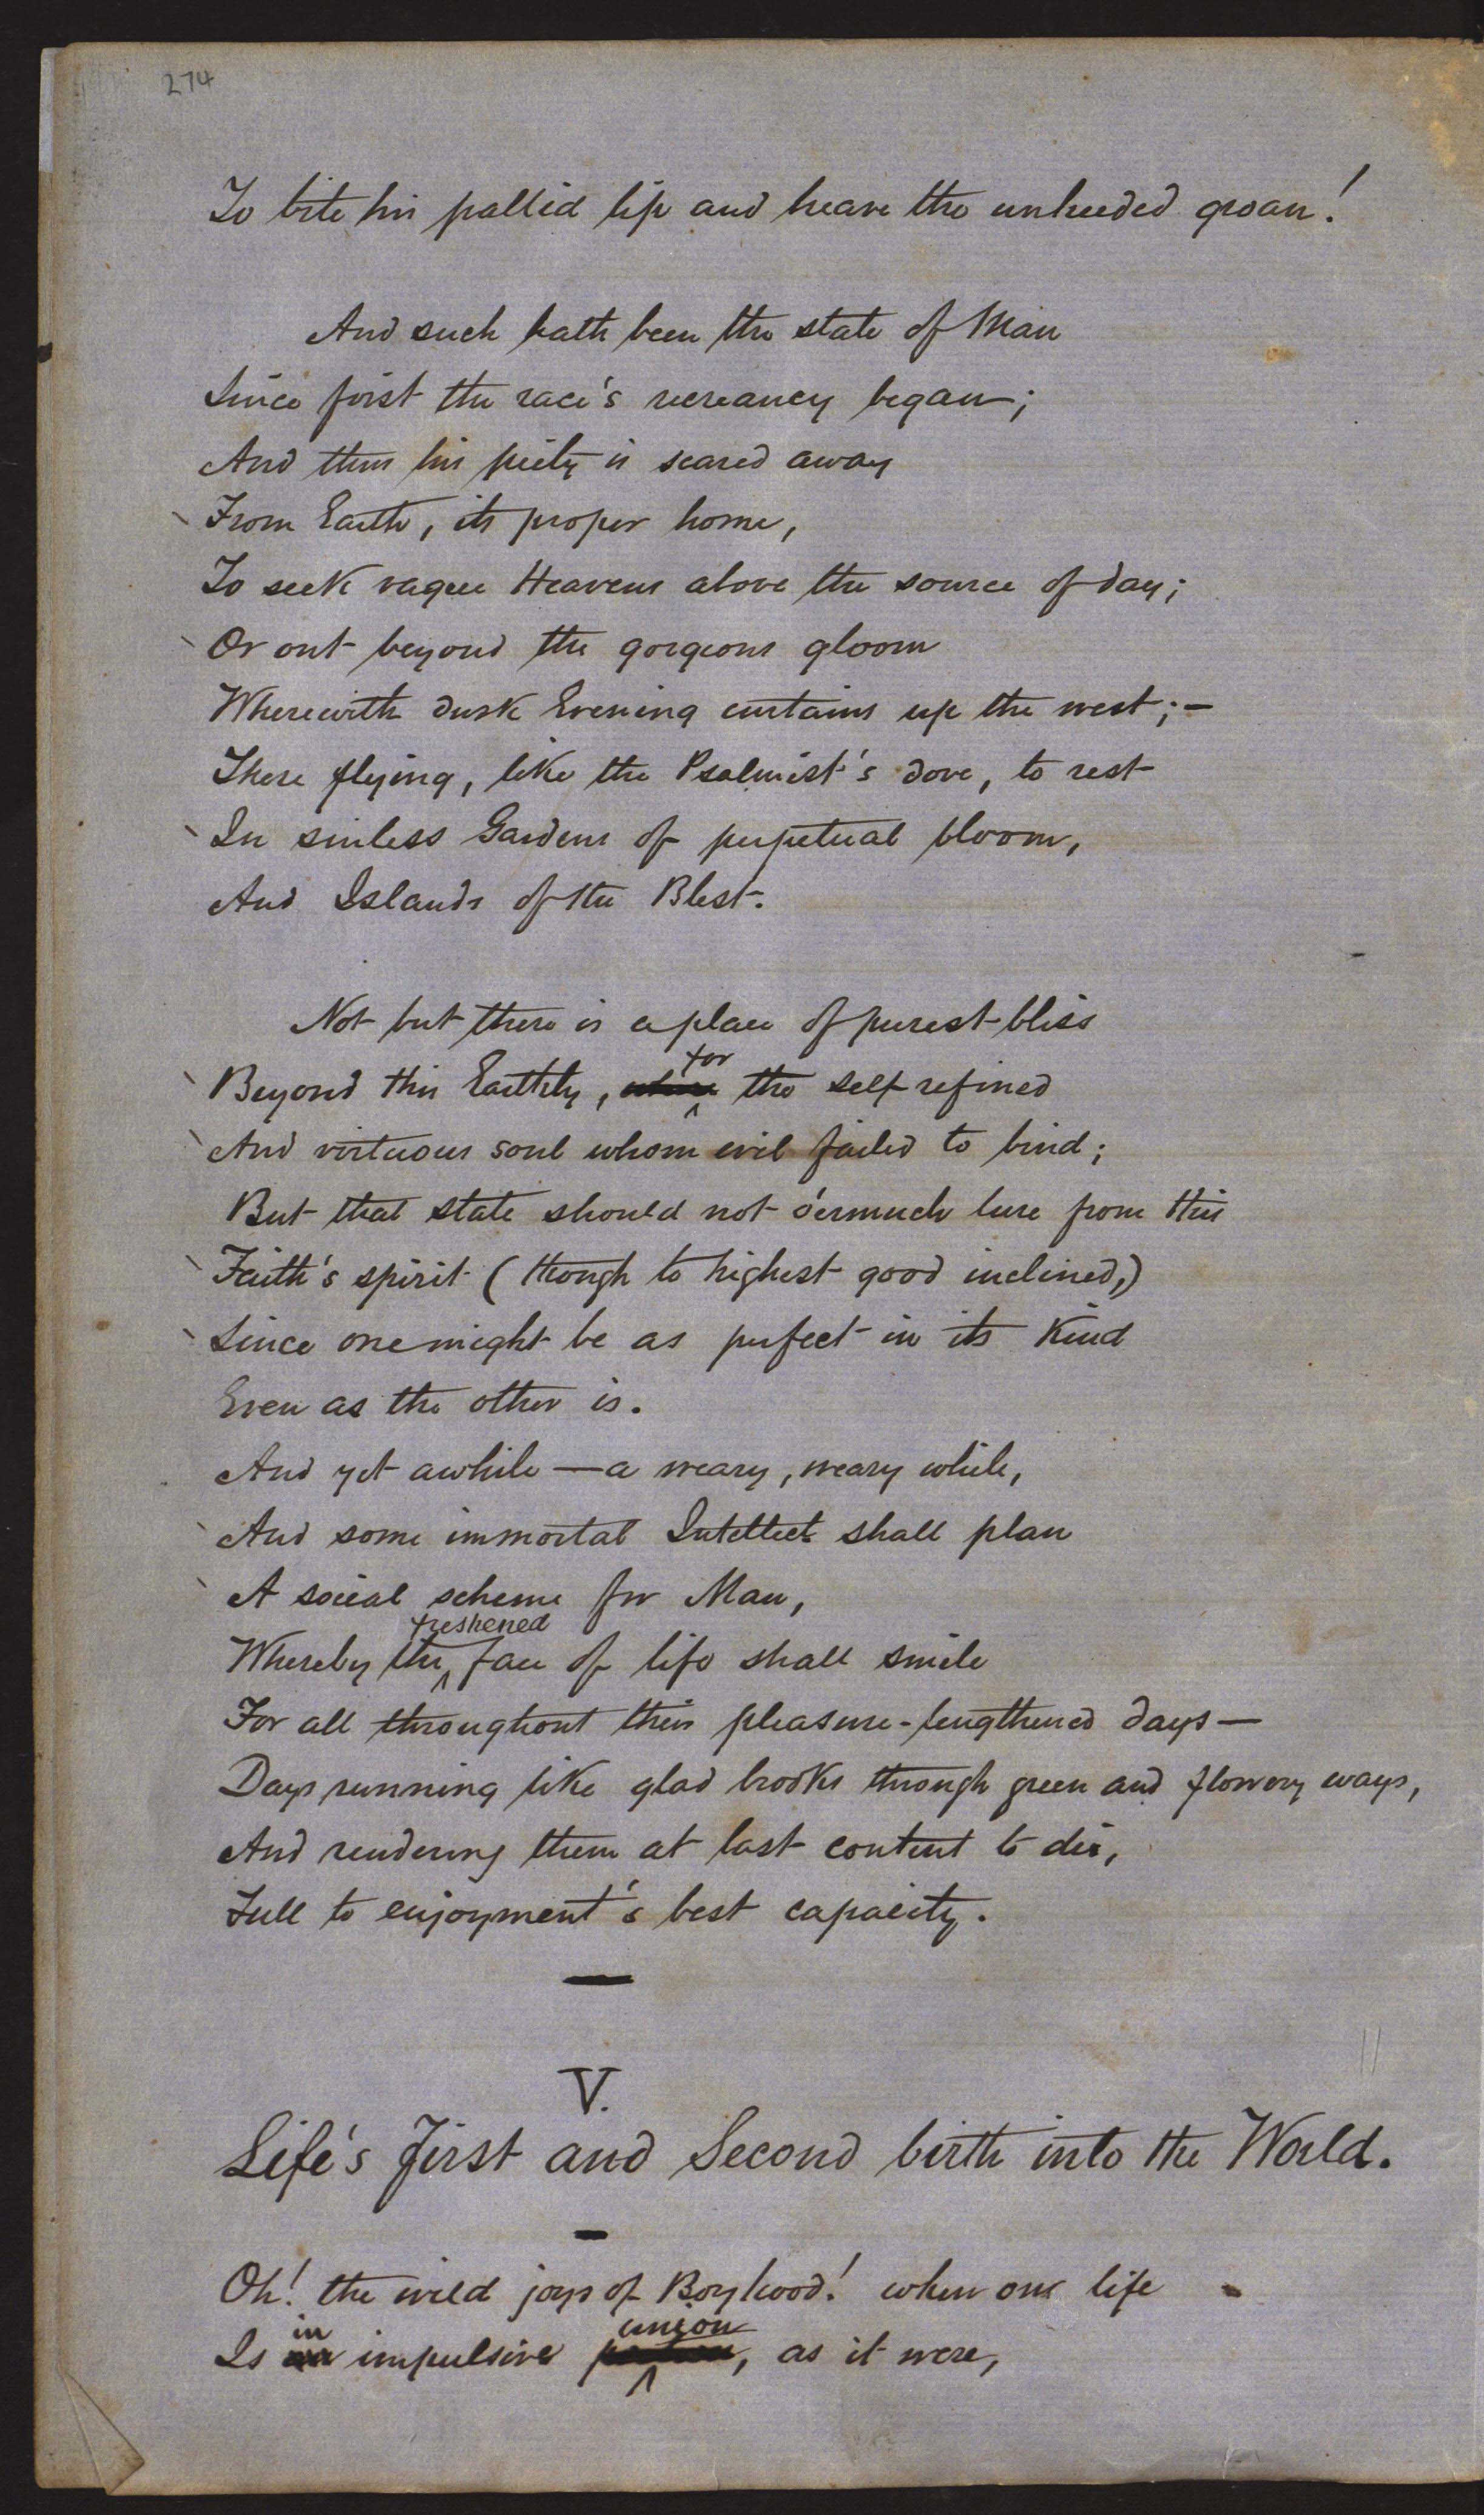 274
To bite his pallid lip and heave the unheeded groan!
And such hath been the state of Man
Since first the race's recreancy began;
And thus his piety is scared away
From Earth, its proper home,
To seek vague Heavens above the source of day;
Or out beyond the gorgeous gloom
Wherewith dusk Evening curtains up the west;—
There flying, like the Psalmist's dove, to rest
In sinless Gardens of perpetual bloom,
And Islands of the Blest.
Not but there is a place of purest bliss
Beyond this Earthly, for the self refined
And virtuous soul whom evil failed to bind;
But that state should not o'ermuch lure from this
Faith's spirit (though to highest good inclined,)
Since one might be as perfect in its kind
Even as the other is.
And yet awhile—a weary, weary while,
And some immortal Intellect shall plan
A social scheme for Man,
Whereby the freshened face of life shall smile
For all throughout their pleasure-lengthened days—
Days running like glad brooks through green and flowery ways,
And rendering them at last content to die,
Full to enjoyment's best capacity.
V.
Life's First and Second birth into the World.
Oh! the wild joys of Boyhood! when our life
Is in impulsive union, as it were,